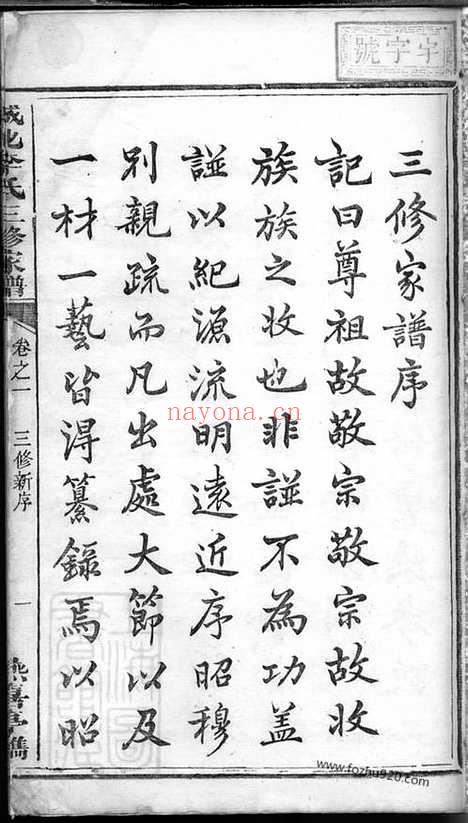 三修家譜序
記曰尊祖故敬宗敬宗故收
族族之收也非諩不為功盖
諩以紀源流明遠近序昭穆
別親疏而凡出處大節以及
一材一藝皆淂纂錄焉以昭
城北李氏三修家譜
卷之一
三修新序
一
字字號
nayona.cn
www.fozhu920.com